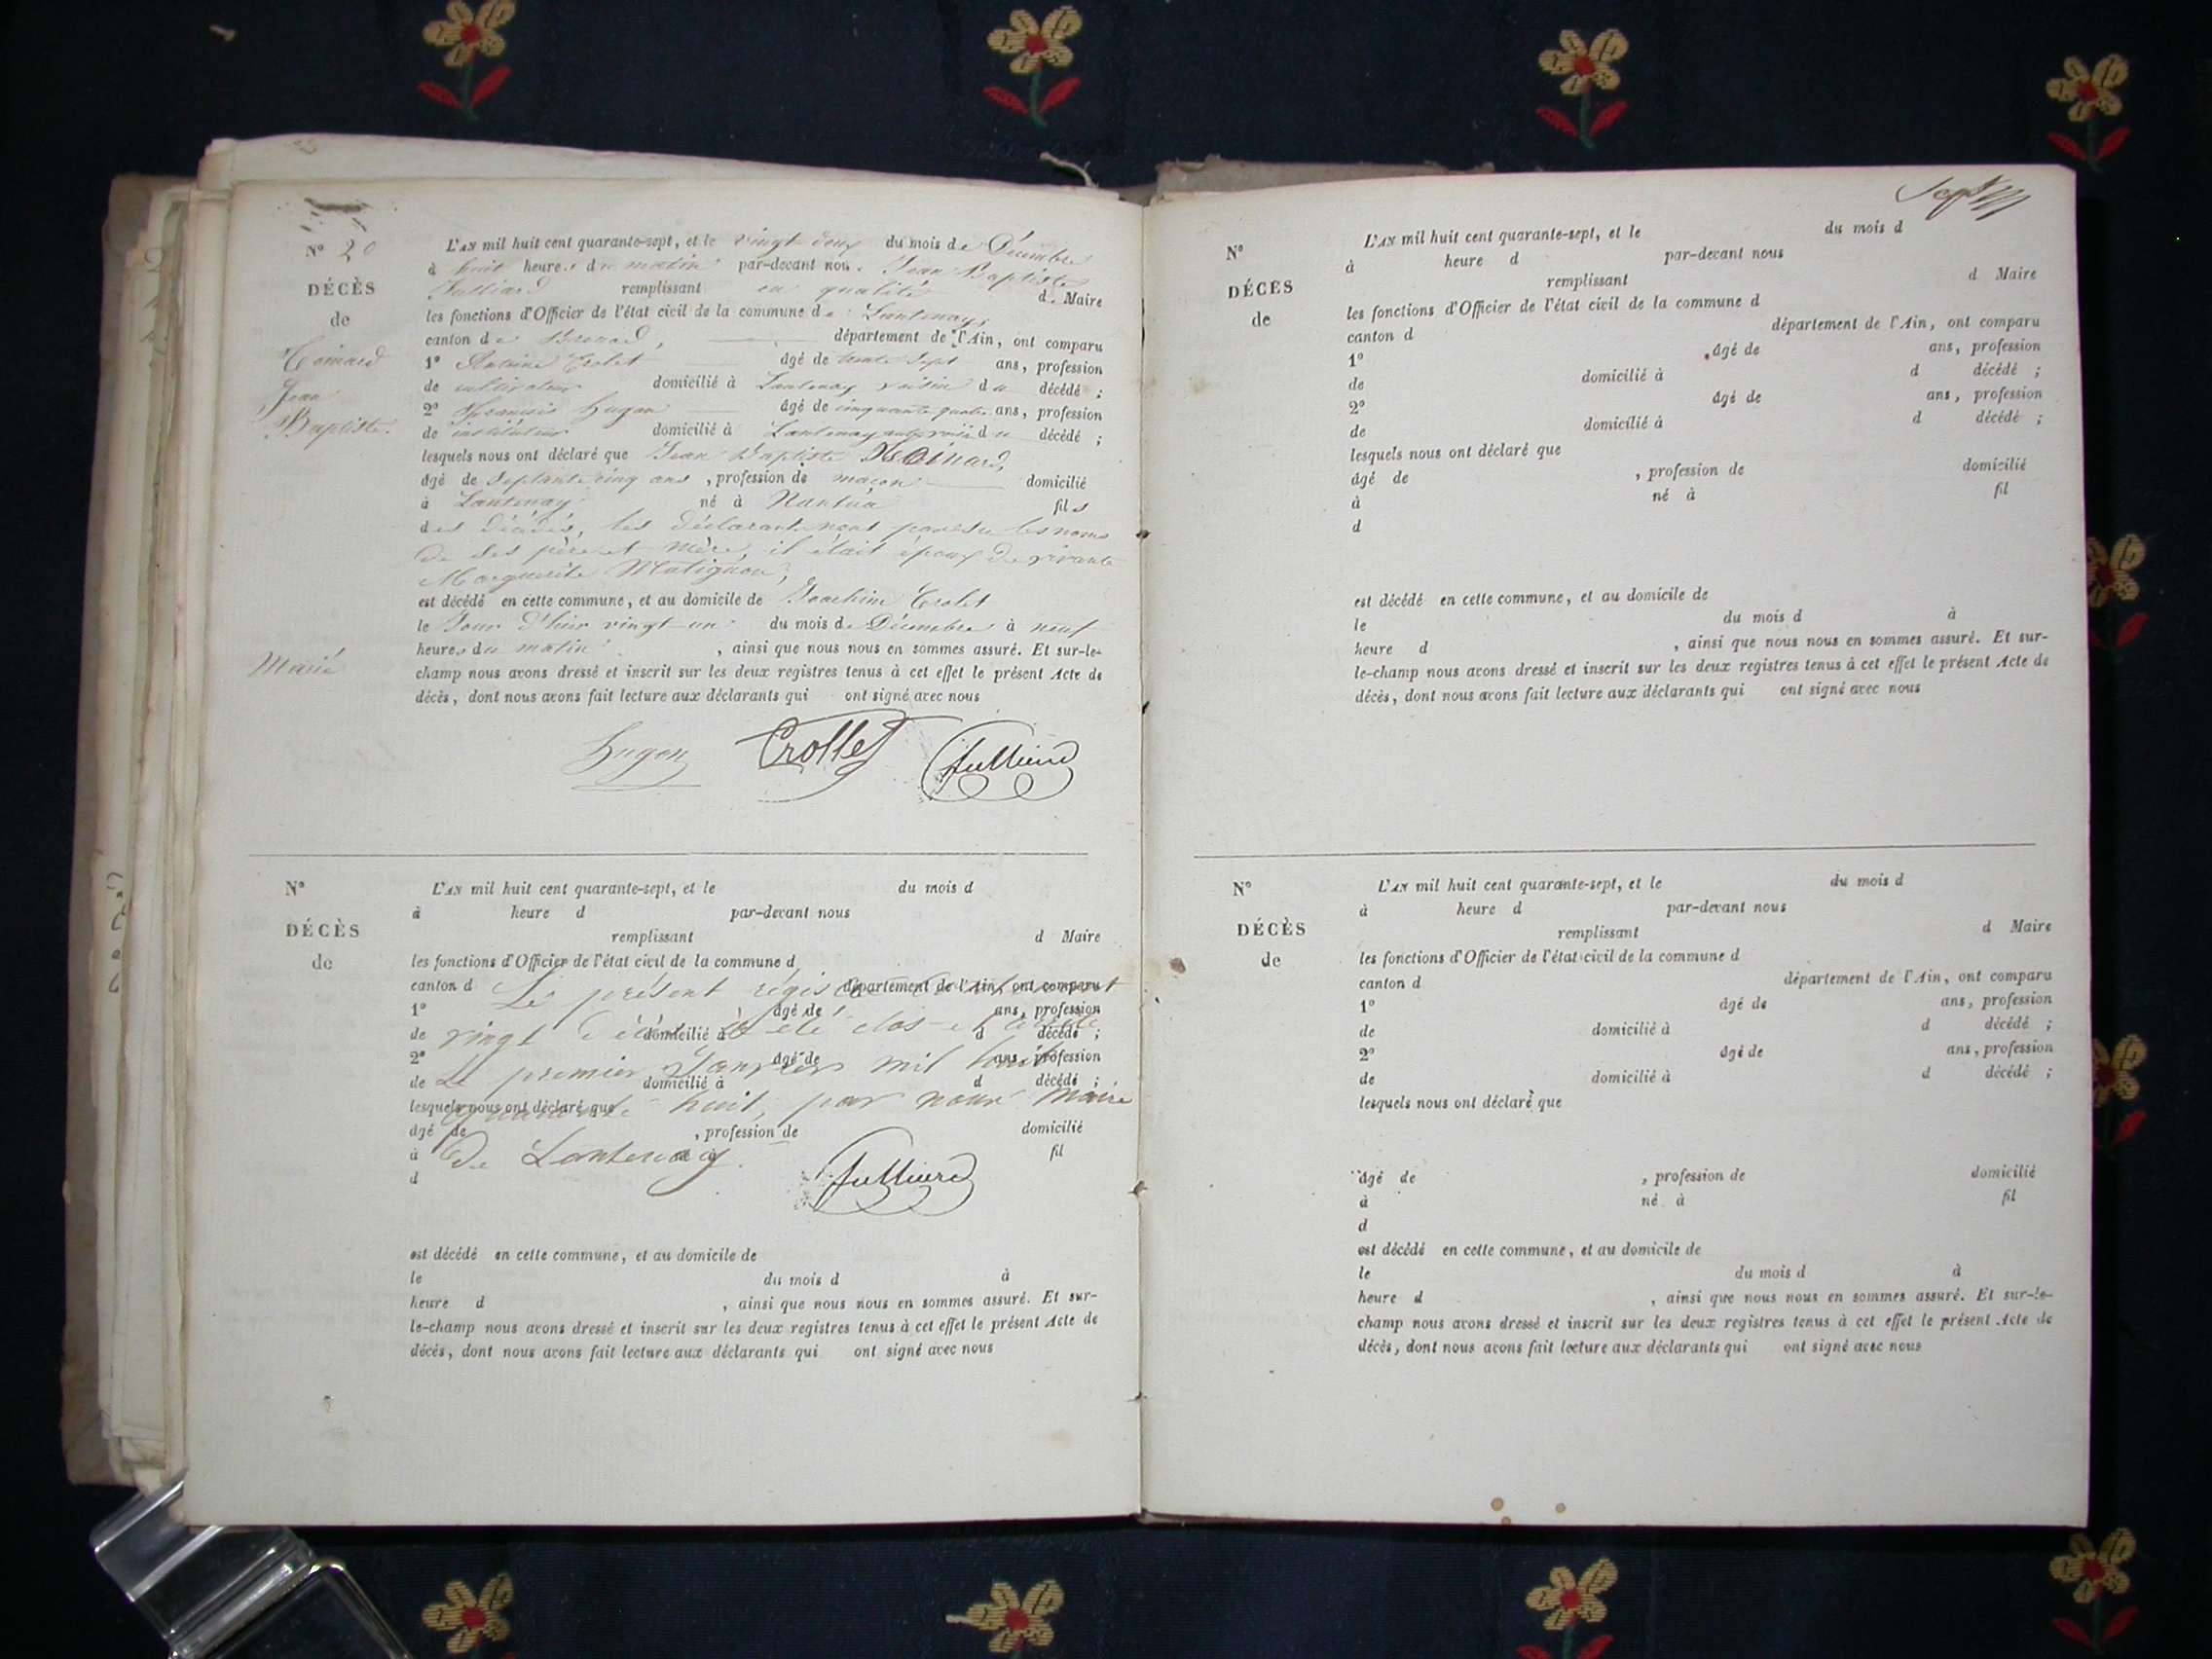 N° 20
DÉCÈS
de
Jean
Baptiste.
Marié
L'AN mil huit cent quarante-sept, et le vingt deux du mois de Décembre
à huit heures du matin par-devant nous Jean Baptiste
Julliard remplissant en qualité de Maire
les fonctions d'Officier de l'état civil de la commune de Lantenay,
canton de Brenod, département de l'Ain, ont comparu
1° Antoine Crolet âgé de trente sept ans, profession
de cultivateur domicilié à Lantenay voisin du décédé ;
2° François Hugon âgé de cinquante quatre ans, profession
de instituteur domicilié à Lantenay du décédé ;
lesquels nous ont déclaré que Jean Baptiste
âgé de septante cinq ans, profession de maçon domicilié
à Lantenay né à Nantua fils
des décédés, les déclarants nont pas su les noms
de ses père et mère, il était époux de vivante
Marguerite Matignon,
est décédé en cette commune, et au domicile de Joachim Crolet
le Jour d'hier vingt un du mois de Décembre à neuf
heures du matin, ainsi que nous nous en sommes assuré. Et sur-le-
champ nous avons dressé et inscrit sur les deux registres tenus à cet effet le présent Acte de
décès, dont nous avons fait lecture aux déclarants qui ont signé avec nous
Hugon Crollet Julliard
N°
DÉCÈS
de
L'AN mil huit cent quarante-sept, et le du mois d
à heure d par-devant nous
remplissant d Maire
les fonctions d'Officier de l'état civil de la commune d
canton d département de l'Ain, ont comparu
Le présent régistre contenant
1° âgé de ans, profession
vingt décès a été clos et arrêté
de domicilié à d décédé ;
2° âgé de ans, profession
Le premier Janvier mil huit
de domicilié à d décédé ;
quarante huit, par nous Maire
lesquels nous ont déclaré que
âgé de , profession de domicilié
de Lantenay. Julliard
à né à fil
d
est décédé en cette commune, et au domicile de
le du mois d à
heure d , ainsi que nous nous en sommes assuré. Et sur-
le-champ nous avons dressé et inscrit sur les deux registres tenus à cet effet le présent Acte de
décès, dont nous avons fait lecture aux déclarants qui ont signé avec nous
N°
DÉCÈS
de
L'AN mil huit cent quarante-sept, et le du mois d
à heure d par-devant nous
remplissant d Maire
les fonctions d'Officier de l'état civil de la commune d
canton d département de l'Ain, ont comparu
1° âgé de ans, profession
de domicilié à d décédé ;
2° âgé de ans, profession
de domicilié à d décédé ;
lesquels nous ont déclaré que
âgé de , profession de domicilié
à né à fil
d
est décédé en cette commune, et au domicile de
le du mois d à
heure d , ainsi que nous nous en sommes assuré. Et sur-
le-champ nous avons dressé et inscrit sur les deux registres tenus à cet effet le présent Acte de
décès, dont nous avons fait lecture aux déclarants qui ont signé avec nous
N°
DÉCÈS
de
L'AN mil huit cent quarante-sept, et le du mois d
à heure d par-devant nous
remplissant d Maire
les fonctions d'Officier de l'état civil de la commune d
canton d département de l'Ain, ont comparu
1° âgé de ans, profession
de domicilié à d décédé ;
2° âgé de ans, profession
de domicilié à d décédé ;
lesquels nous ont déclaré que
âgé de , profession de domicilié
à né à fil
d
est décédé en cette commune, et au domicile de
le du mois d à
heure d , ainsi que nous nous en sommes assuré. Et sur-le-
champ nous avons dressé et inscrit sur les deux registres tenus à cet effet le présent Acte de
décès, dont nous avons fait lecture aux déclarants qui ont signé avec nous